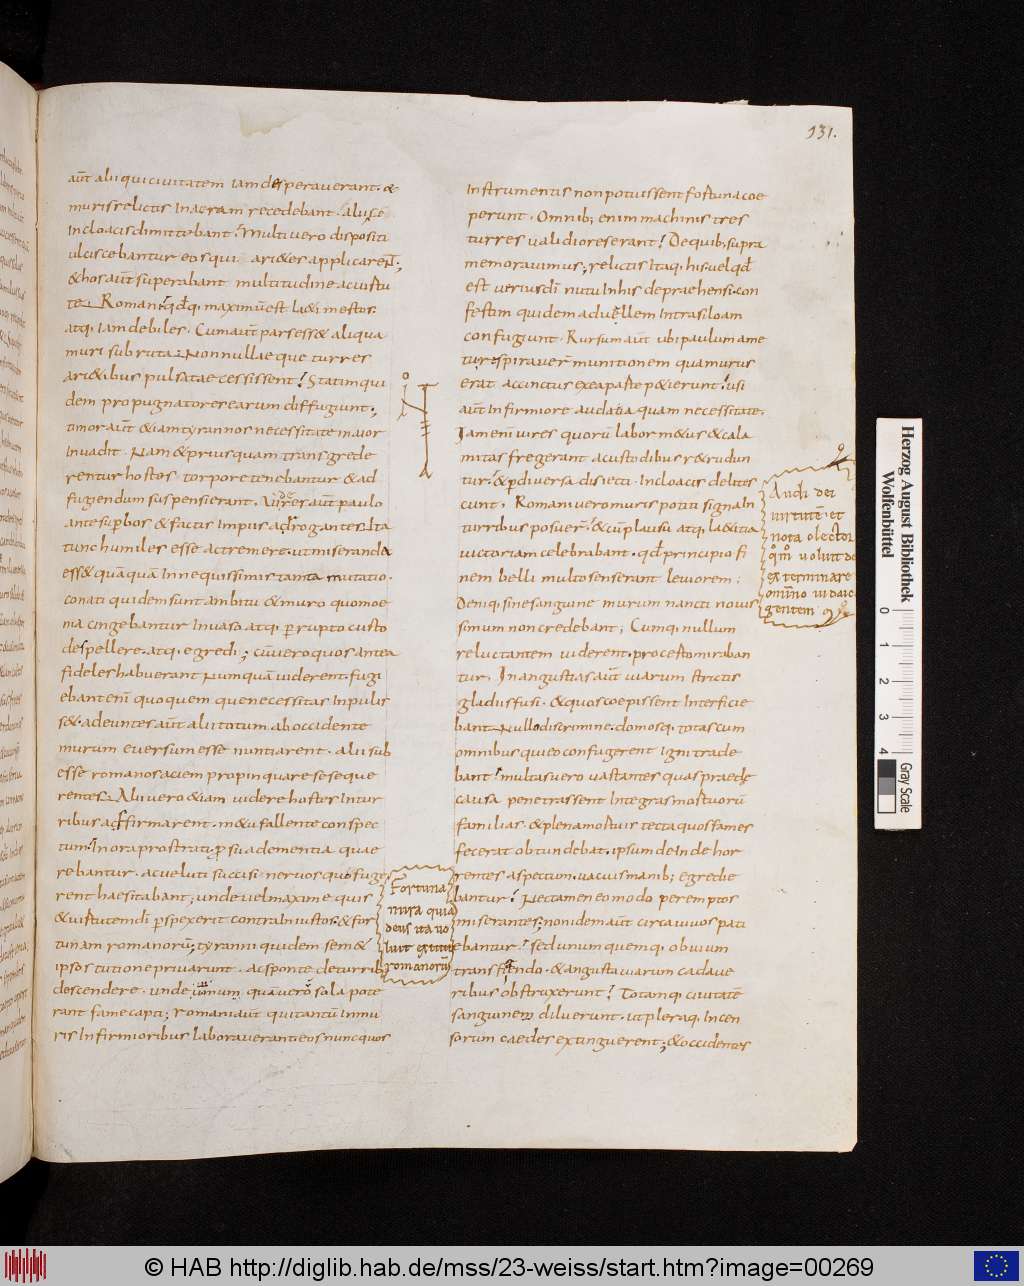 131.
aut̄ alii qui ciuitatem iam desperauerant· &
muris relictis In acram recedebant· alii sē
In cloacis dimittebant· Multi uero dispositi
ulciscebantur eos qui arietes applicarent̄;
& hos aut̄ superabant multitudine ac uirtu
te Romani· qđq· maximū est laeti mestos·
atq· iam debiles· Cum aut̄ pars esset aliqua
muri subruta· Nonnullaeque turres
arietibus pulsatae cessissent! Statim qui
dem propugnatores earum diffugiunt·
timor aut̄ etiam tyrannos necessitate maior
Inuadit· Nam & prius quam transgrede
rentur hostes torpore tenebantur· & ad
fugiendum suspensi erant·
ante superbos & factis Impiis adrogantes· Ita
tunc humiles esse ac tremere· ut miseranda
esset quāquā In nequissimis tanta mutatio·
conati quidem sunt ambitu & muro quo moe
nia cingebantur Inuaso atq· perrupto custo
des pellere· atq· egredi; cū uero quos antea
fideles habuerant Numquā uiderent· fugi
ebant enī quo quemque necessitas Impulis
set· adeuntes aut̄ alii totum ab occidente
murum euersum esse nuntiarent· alii sub
esse romanos aciem propinquare sese que
rentes· Alii uero etiam uidere hostes In tur
ribus adfirmarent· metu fallente conspec
tum· In ora prostrati· p̄ sua dementia quae
rebantur· ac ueluti succisi neruos quo fuge
rent haesitabant; unde uel maxime quis
& uirtutem dī perspexerit contra Iniustos· & for
tunam romanorū; tyranni quidem semet
ipsos tutione priuarunt· ac sponte de turrib;
descendere· unde numquā uero sola pote
rant fame capti; romani aut̄ qui tantū In mu
ris Infirmioribus laborauerant· eos nunc quos
Fortuna
mira quia
deus ita uo
luit extitit
romanorū
Instrumentis non potuissent fortuna coe
perunt· Omnib; enim machinis tres
turres ualidiores erant! De quib; supra
memorauimus; relictis Itaq· his uel qđ
est uerius dī nutu In his depraehensi· con
festim quidem ad uellem Intra siloam
confugiunt· Rursum aut̄ ubi paulum a me
tu respirauer̄ munitionem qua murus
erat accinctus ex ea parte petierunt! usi
aut̄ Infirmiore audatia quam necessitate·
Iam enī uires quorū labor metus & cala
mitas fregerant a custodibus retrudun
tur· & p̄ diuersa disiecti· In cloacis delites
cunt· Romani uero muris potiti signa In
turribus posuer̄· & cū plausu atq· laetitia
uictoriam celebrabant· qđ principio fi
nem belli multo senserant leuiorem;
Deniq· sine sanguine murum nancti nouis
simum non credebant; Cumq· nullum
reluctantem uiderent· pro certo miraban
tur· In angustias aut̄ uiarum strictis
gladiis fusi· & quos coepissent Interficie
bant Nullo discrimine· domosq· totas cum
omnibus qui eo confugerent igni trade
bant! multas uero uastantes quas praedę
causa penetrassent Integras mortuorū
familias· & plena mortuis tecta quos fames
fecerat obtundebat· ipsum deInde hor
rentes aspectum· uacuis manib; egredie
bantur! Nec tamen eo modo peremptos
miserantes; non idem aut̄ circa uiuos pati
ebantur! sed unum quemq· obuium
transfigendo· & angusta uiarum cadaue
ribus obstruxerunt! Totamq· ciuitatē
sanguinem diluerunt· ut pleraq· Incen
sorum caedes extinguerent; & occidentes
Audi dei
uirtutē et
nota o lector
qm̄ uoluit de
exterminare
omīno iudaic
gentem
Herzog August Bibliothek
Wolfenbüttel
0 1 2 3 4
Gray Scale
© HAB http://diglib.hab.de/mss/23-weiss/start.htm?image=00269